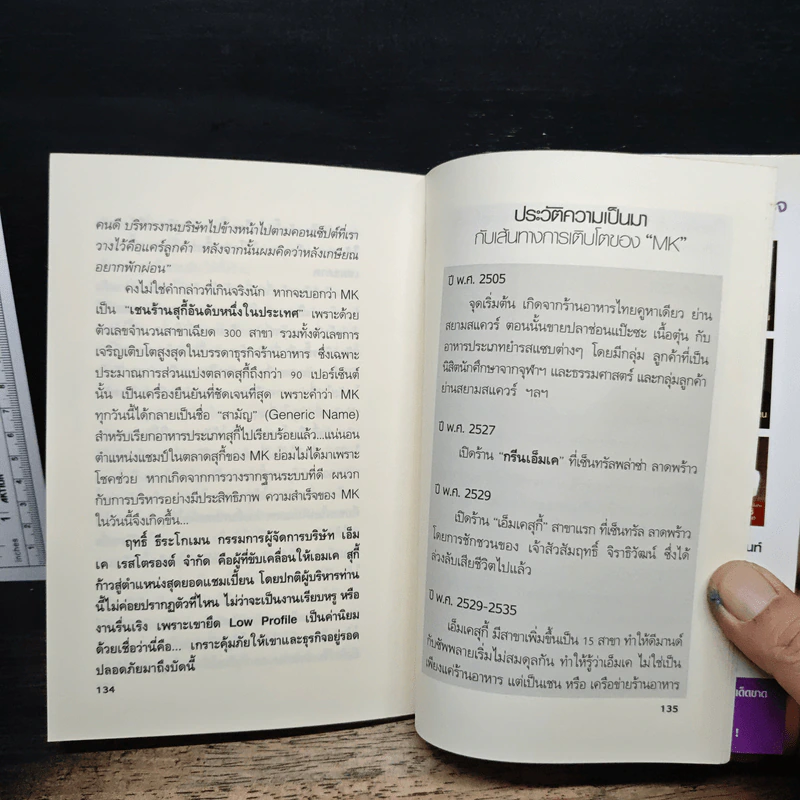 คนดี บริหารงานบริษัทไปข้างหน้าไปตามคอนเซ็ปต์ที่เรา
วางไว้คือแคร์ลูกค้า หลังจากนั้นผมคิดว่าหลังเกษียณ
อยากพักผ่อน”
คงไม่ใช่คำกล่าวที่เกินจริงนัก หากจะบอกว่า MK
เป็น “เชนร้านสุกี้อันดับหนึ่งในประเทศ” เพราะด้วย
ตัวเลขจำนวนสาขาเฉียด 300 สาขา รวมทั้งตัวเลขการ
เจริญเติบโตสูงสุดในบรรดาธุรกิจร้านอาหาร ซึ่งเฉพาะ
ประมาณการส่วนแบ่งตลาดสุกี้ถึงกว่า 90 เปอร์เซ็นต์
นั้น เป็นเครื่องยืนยันที่ชัดเจนที่สุด เพราะคำว่า MK
ทุกวันนี้ได้กลายเป็นชื่อ “สามัญ” (Generic Name)
สำหรับเรียกอาหารประเภทสุกี้ไปเรียบร้อยแล้ว...แน่นอน
ตำแหน่งแชมป์ในตลาดสุกี้ของ MK ย่อมไม่ได้มาเพราะ
โชคช่วย หากเกิดจากการวางรากฐานระบบที่ดี ผนวก
กับการบริหารอย่างมีประสิทธิภาพ ความสำเร็จของ MK
ในวันนี้จึงเกิดขึ้น...
ฤทธิ์ ธีระโกเมน กรรมการผู้จัดการบริษัท เอ็ม
เค เรสโตรองต์ จำกัด คือผู้ที่ขับเคลื่อนให้เอมเค สุกี้
ก้าวสู่ตำแหน่งสุดยอดแชมเปี้ยน โดยปกติผู้บริหารท่าน
นี้ไม่ค่อยปรากฏตัวที่ไหน ไม่ว่าจะเป็นงานเรียบหรู หรือ
งานรื่นเริง เพราะเขายึด Low Profile เป็นค่านิยม
ด้วยเชื่อว่านี่คือ... เกราะคุ้มภัยให้เขาและธุรกิจอยู่รอด
ปลอดภัยมาถึงบัดนี้
134
ประวัติความเป็นมา
กับเส้นทางการเติบโตของ “MK”
ปี พ.ศ. 2505
จุดเริ่มต้น เกิดจากร้านอาหารไทยคูหาเดียว ย่าน
สยามสแควร์ ตอนนั้นขายปลาช่อนแป๊ะซะ เนื้อตุ๋น กับ
อาหารประเภทยำรสแซบต่างๆ โดยมีกลุ่ม ลูกค้าที่เป็น
นิสิตนักศึกษาจากจุฬาฯ และธรรมศาสตร์ และกลุ่มลูกค้า
ย่านสยามสแควร์ ฯลฯ
ปี พ.ศ. 2527
เปิดร้าน “กรีนเอ็มเค” ที่เซ็นทรัลพล่าซ่า ลาดพร้าว
ปี พ.ศ. 2529
เปิดร้าน “เอ็มเคสุกี้” สาขาแรก ที่เซ็นทรัล ลาดพร้าว
โดยการชักชวนของ เจ้าสัวสัมฤทธิ์ จิราธิวัฒน์ ซึ่งได้
ล่วงลับเสียชีวิตไปแล้ว
ปี พ.ศ. 2529-2535
เอ็มเคสุกี้ มีสาขาเพิ่มขึ้นเป็น 15 สาขา ทำให้ดีมานด์
กับซัพพลายเริ่มไม่สมดุลกัน ทำให้รู้ว่าเอ็มเค ไม่ใช่เป็น
เพียงแค่ร้านอาหาร แต่เป็นเชน หรือ เครือข่ายร้านอาหาร
135